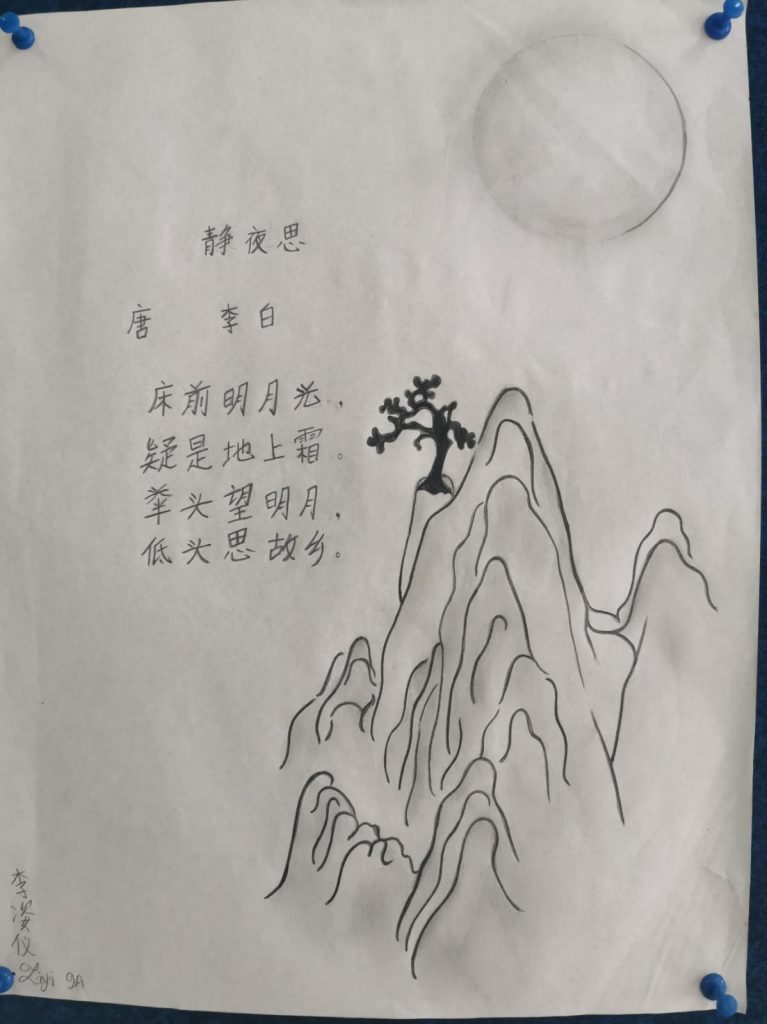 静夜思
唐 李白
床前明月光，
疑是地上霜。
举头望明月，
低头思故乡。
李姿仪
Ziyi 9A